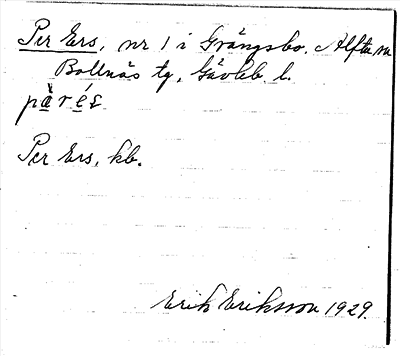 Per Ers, nr 1 i Grängsbo. Alfta sn
Bollnäs tg, Gävleb. l.
pàrés
Per Ers, kb.
Erik Eriksson 1929.